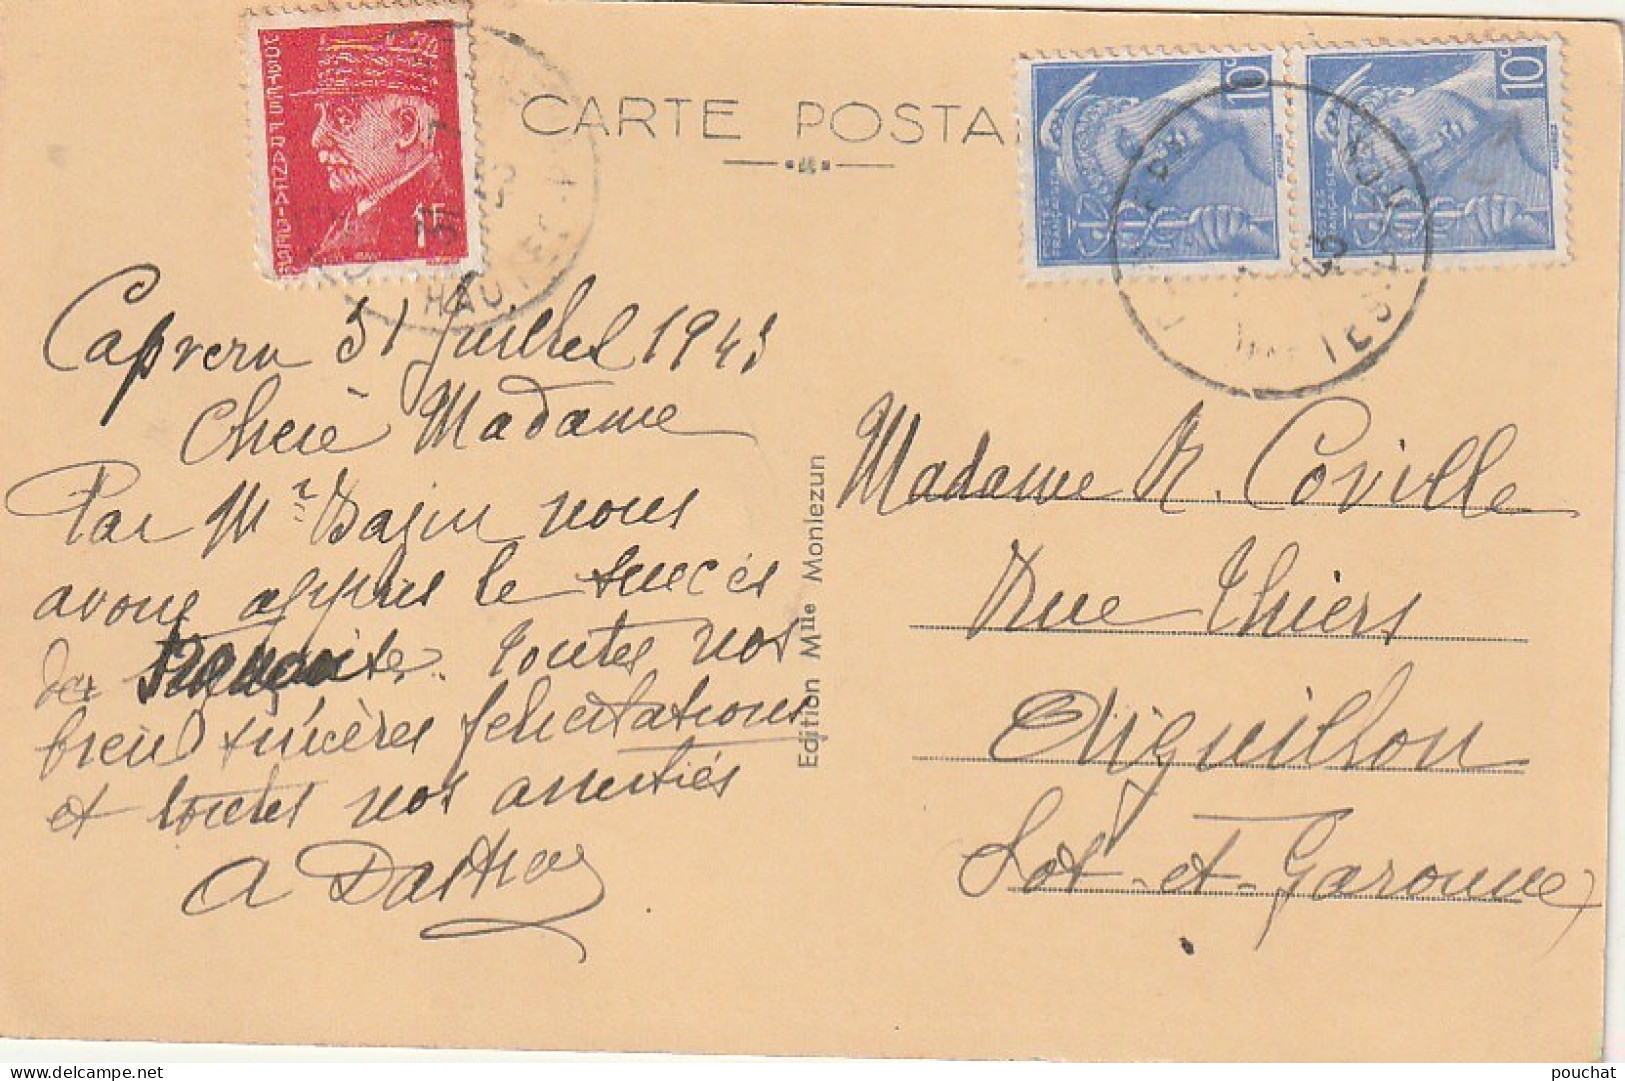 CARTE POSTA
POSTES FRANÇAISES
1F
10c
10c
POSTES
FRANÇAISES
HAUTES
Capvern 31 Juillet 1943
Chère Madame
Par Mr Dajun nous
avons appris le succès
de Françoise. Toutes nos
bien sincères félicitations
et toutes nos amitiés
A Dastros
Edition Mlle Monlezun
Madame R. Coville
Rue Thiers
Aiguillon
Lot-et-Garonne
pouchat